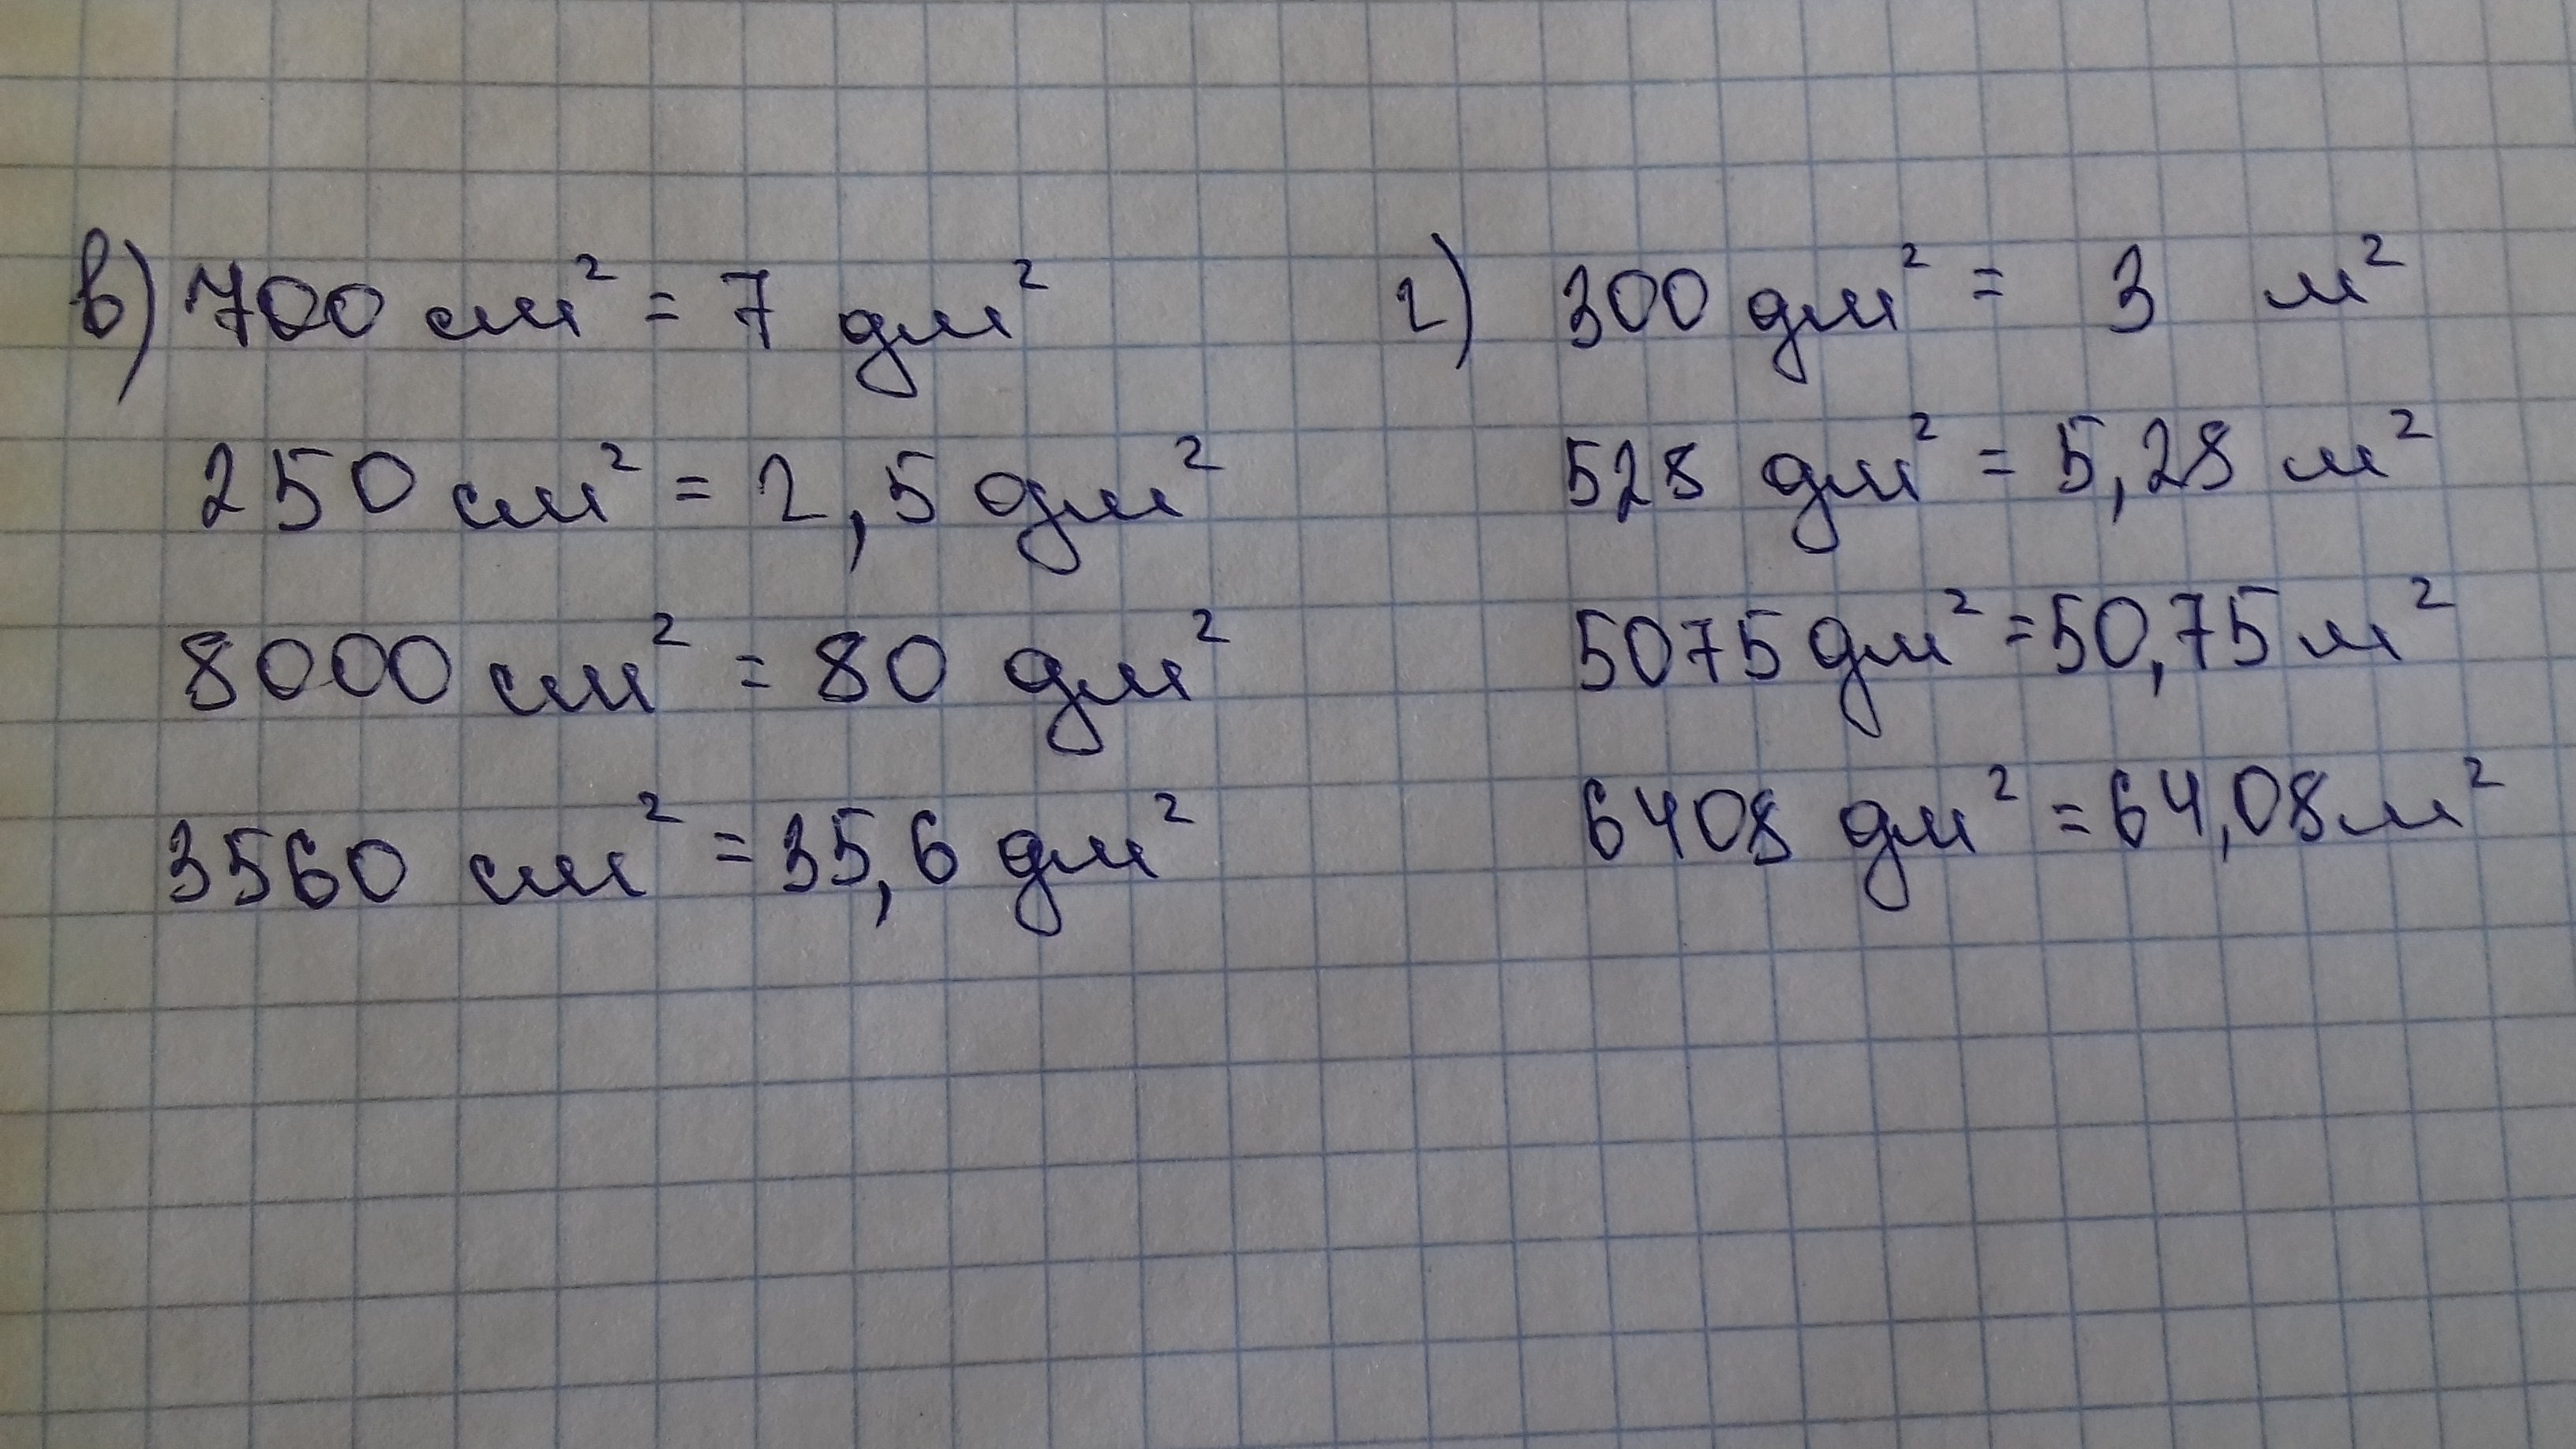 в) 700 см² = 7 дм²
250 см² = 2,5 дм²
8000 см² = 80 дм²
3560 см² = 35,6 дм²
г) 300 дм² = 3 м²
528 дм² = 5,28 м²
5075 дм² = 50,75 м²
6408 дм² = 64,08 м²